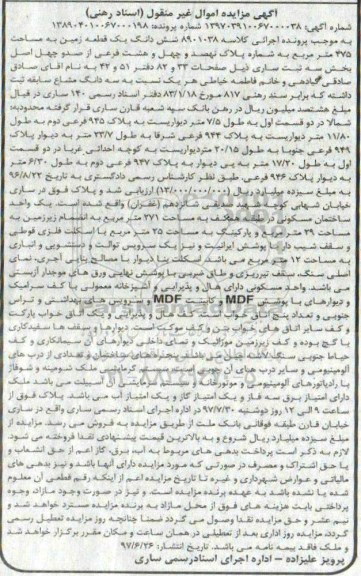 آگهی مزایده اموال غیر منقول (اسناد رهنی)
شماره آگهی: ۱۳۹۷۰۳۹۱۰۶۷۰۰۰۰۳۸ شماره پرونده: ۱۳۸۹۰۴۰۱۰۰۶۷۰۰۰۱۹۸
به موجب پرونده اجرائی کلاسه ۸۹۰۱۰۳۸ شش دانگ یک قطعه زمین به مساحت
۴۷۵ متر مربع به شماره پلاک نهصد و چهل و هشت فرعی از سی و چهل اصل
بخش سه ثبت ساری ذیل صفحات ۳۳ و ۸۲ دفتر ۵۱ و ۴۲ به نام آقای صادق
صادقی گیادهی و خانم فاطمه خیاطی هر یک نسبت به سه دانگ مشاع سابقه ثبت
داشته که برابر سند رهنی ۸۱۷ مورخ ۸۳/۱/۱۸ دفتر اسناد رسمی ۱۴۰ ساری در قبال
مبلغ هشتصد میلیون ریال در رهن بانک سپه شعبه قارن ساری قرار گرفته محدوده:
شمالا در دو قسمت اول به طول ۷/۵ متر دیواریست به پلاک ۹۴۵ فرعی دوم به طول
۱۱/۸۰ متر دیواریست به پلاک ۹۴۴ فرعی شرقا به طول ۲۳/۷ متر به دیوار پلاک
۹۴۹ فرعی جنوبا به طول ۲۰/۱۵ متر دیواریست به کوچه احداثی غربا در دو قسمت
اول به طول ۱۷/۳۰ متر به پی دیوار به پلاک ۹۴۷ فرعی دوم به طول ۶/۳۰ متر
به دیوار پلاک ۹۴۶ فرعی. طبق نظر کارشناس رسمی دادگستری به تاریخ ۹۶/۸/۲۲
به مبلغ سیزده میلیارد ریال (۱۳/۰۰۰/۰۰۰/۰۰۰) ارزیابی شد و پلاک فوق در ساری
خیابان شهابی کوچه شهید صدیقی یازدهم (غفران) واقع شده است. یک واحد
ساختمان مسکونی در طبقه همکف به مساحت ۲۷۱ متر مربع به انضمام زیرزمین به
مساحت ۳۹ متر مربع و پارکینگ به مساحت ۲۵ متر مربع با اسکلت فلزی قوطی
و سقف شیب دار با پوشش ایرانیت و نیز یک سرویس توالت و دستشویی و انباری
به مساحت ۱۲ متر مربع می باشد. اسکلت بنا دیوار با مصالح بنایی آجری، نمای
اصلی سنگ، سقف تیرریزی و طاق ضربی با پوشش نهایی ورق های موجدار آزبستی
می باشد. واحد مسکونی دارای هال و پذیرایی و آشپزخانه معمولی با کف سرامیک
و دیوارهای با پوشش MDF و کابینت MDF و سرویس های بهداشتی و تراس
جنوبی و تعداد پنج اتاق خواب است. کف هال و پذیرایی و یک اتاق خواب پارکت
و کف سایر اتاق های خواب بتن و کف موکت است. دیوارها و سقف ها سفیدکاری
با گچ بوده و کف زیرزمین موزائیک و نمای داخلی دیوارهای آن سیمانکاری و کف
حیاط جنوبی سنگ پلاک می باشد. پنجره های ساختمان و تعدادی از درب های
آلومینیومی و سایر درب های آن چوبی است. سیستم گرمایشی ملک شومینه و شوفاژ
با رادیاتورهای آلومینیومی و موتورخانه و سیستم سرمایشی آن اسپیلت می باشد ملک
دارای امتیاز برق سه فاز و یک امتیاز گاز و یک امتیاز آب می باشد. پلاک فوق از
ساعت ۹ الی ۱۲ روز دوشنبه ۹۷/۷/۳۰ در اداره اجرای اسناد رسمی ساری واقع در ساری
خیابان قارن طبقه فوقانی بانک ملت از طریق مزایده به فروش می رسد. مزایده از
مبلغ سیزده میلیارد ریال شروع و به بالاترین قیمت پیشنهادی نقدا فروخته می شود.
لازم به ذکر است پرداخت بدهی های مربوط به آب، برق، گاز اعم از حق انشعاب و
یا حق اشتراک و مصرف در صورتی که مورد مزایده دارای آنها باشد و نیز بدهی های
مالیاتی و عوارض شهرداری و غیره تا تاریخ مزایده اعم از اینکه رقم قطعی آن معلوم
شده یا نشده باشد به عهده برنده مزایده است. و نیز در صورت وجود مازاد، وجوه
پرداختی بابت هزینه های فوق از محل مازاد به برنده مزایده مسترد خواهد شد و
نیم عشر و حق مزایده نقدا وصول می گردد ضمنا چنانچه روز مزایده تعطیل رسمی
گردد، مزایده روز اداری بعد از تعطیلی در همان ساعت و مکان مقرر برگزار خواهد شد
و ملک فاقد بیمه نامه می باشد. تاریخ انتشار: ۹۷/۶/۲۶
پرویز علیزاده – اداره اجرای اسناد رسمی ساری